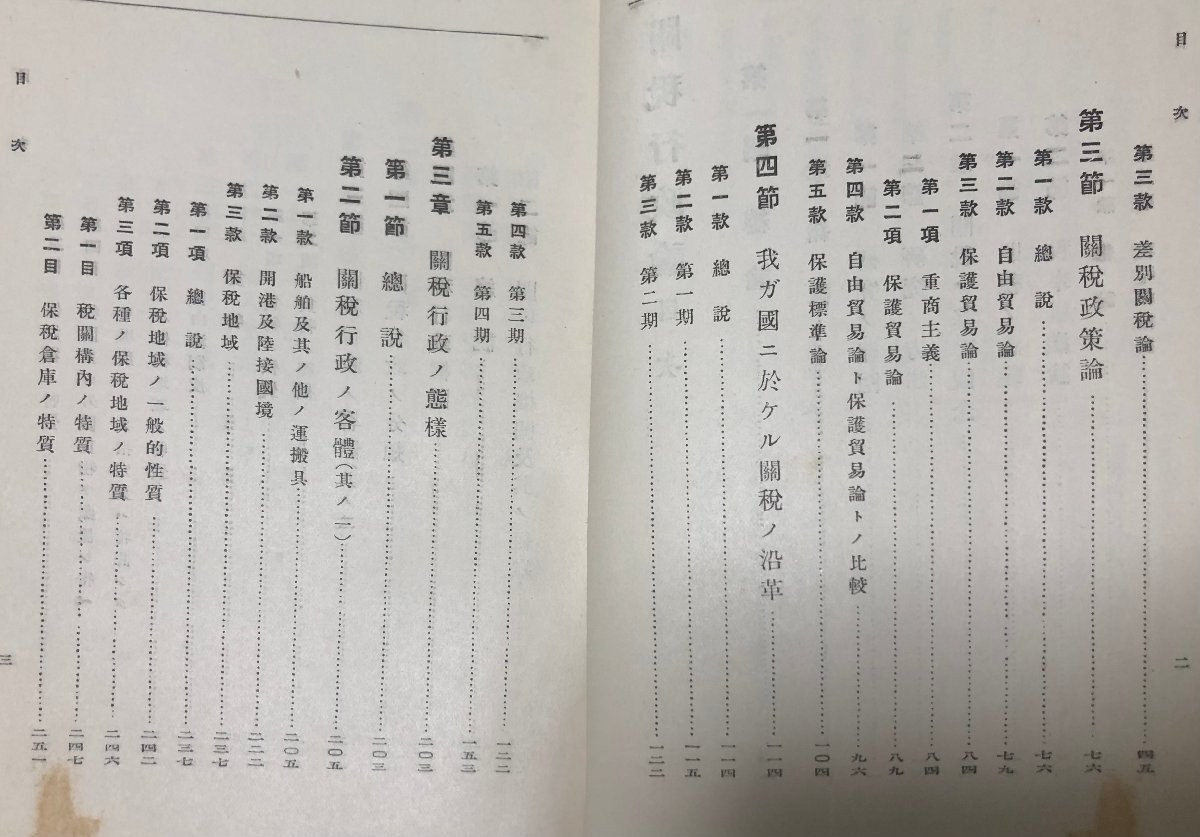 目次
第三款　差別關稅論……四五
第三節　關稅政策論……七六
第一款　總說……七六
第二款　自由貿易論……七九
第三款　保護貿易論……八四
第一項　重商主義……八四
第二項　保護貿易論……八九
第四款　自由貿易論ト保護貿易論トノ比較……九六
第五款　保護標準論……一〇四
第四節　我ガ國ニ於ケル關稅ノ沿革……一一四
第一款　總說……一一四
第二款　第一期……一一五
第三款　第二期……一二二
二
目次
第四款　第三期
第五款　第四期……一五三
第三章　關稅行政ノ態樣……二〇三
第一節　總說……二〇三
第二節　關稅行政ノ客體(其ノ一)……二〇五
第一款　船舶及其ノ他ノ運搬具……二〇五
第二款　開港及陸接國境……二二二
第三款　保稅地域……二三七
第一項　總說……二三七
第二項　保稅地域ノ一般的性質……二四二
第三項　各種ノ保稅地域ノ特質……二四六
第一目　稅關構內ノ特質……二四七
第二目　保稅倉庫ノ特質……二五一
三